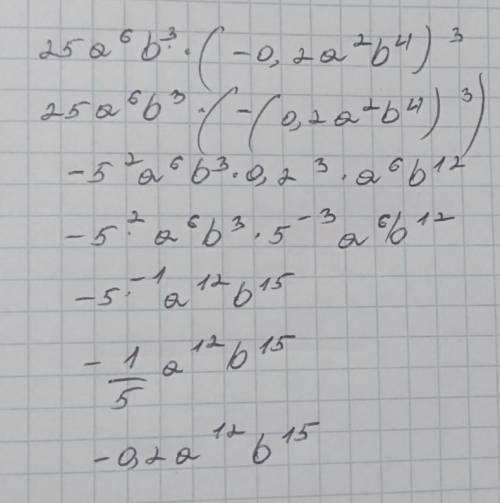 25a⁶b³·(-0,2a²b⁴)³
25a⁶b³·(-(0,2a²b⁴)³)
-5²a⁶b³·0,2³·a⁶b¹²
-5²a⁶b³·5⁻³a⁶b¹²
-5⁻¹a¹²b¹⁵
-1/5 a¹²b¹⁵
-0,2a¹²b¹⁵